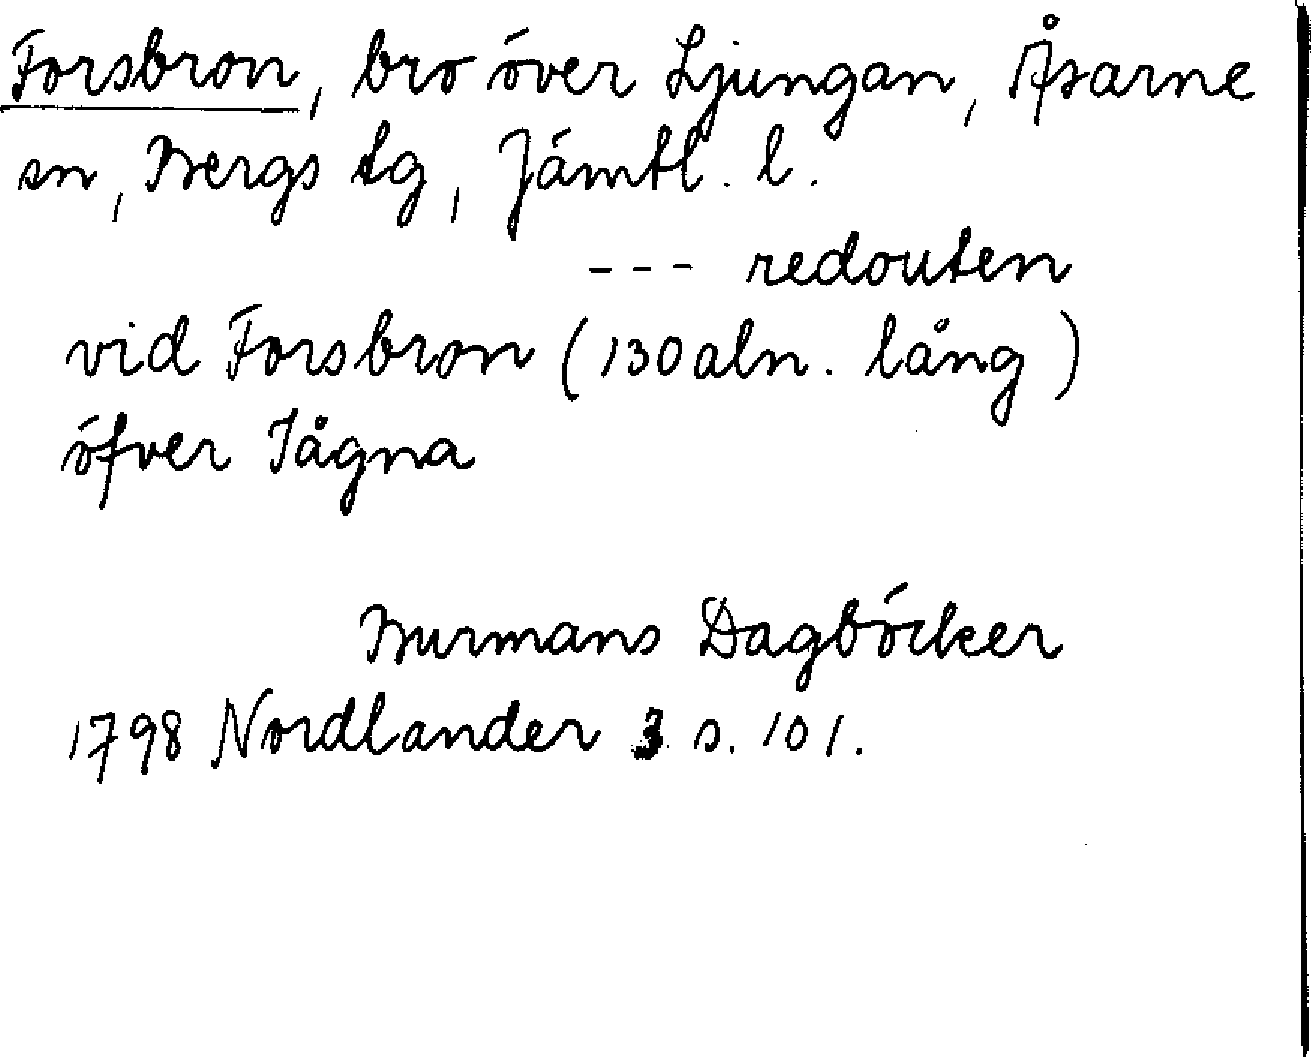 Forsbron, bro över Ljungan, Åsarne
sn, Bergs tg, Jämtl. l.
--- redouten
vid Forsbron (130 aln. lång)
öfver Jågna
Burmans Dagböcker
1798 Nordlander 3 s. 101.